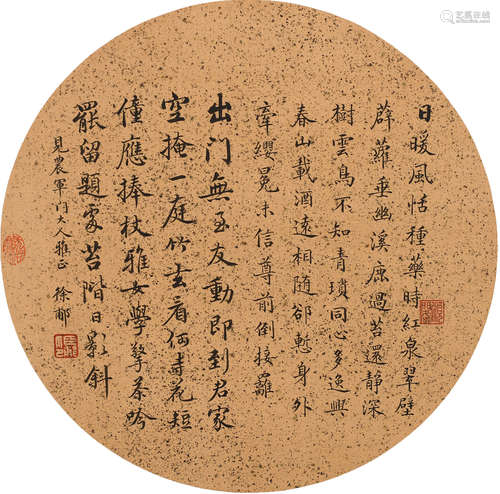 日暖風恬種藥時紅泉翠壁
薜蘿垂幽溪鹿過苔還靜深
樹雲鳥不知青瑣同心多逸興
春山載酒遠相隨卻慙身外
牽纓冕未信尊前倒接䍦
出門無至友動即到君家
空掩一庭竹去看何寺花短
僮應捧杖稚女學擎茶吟
罷留題處苔階日影斜
見農軍門大人雅正 徐郙